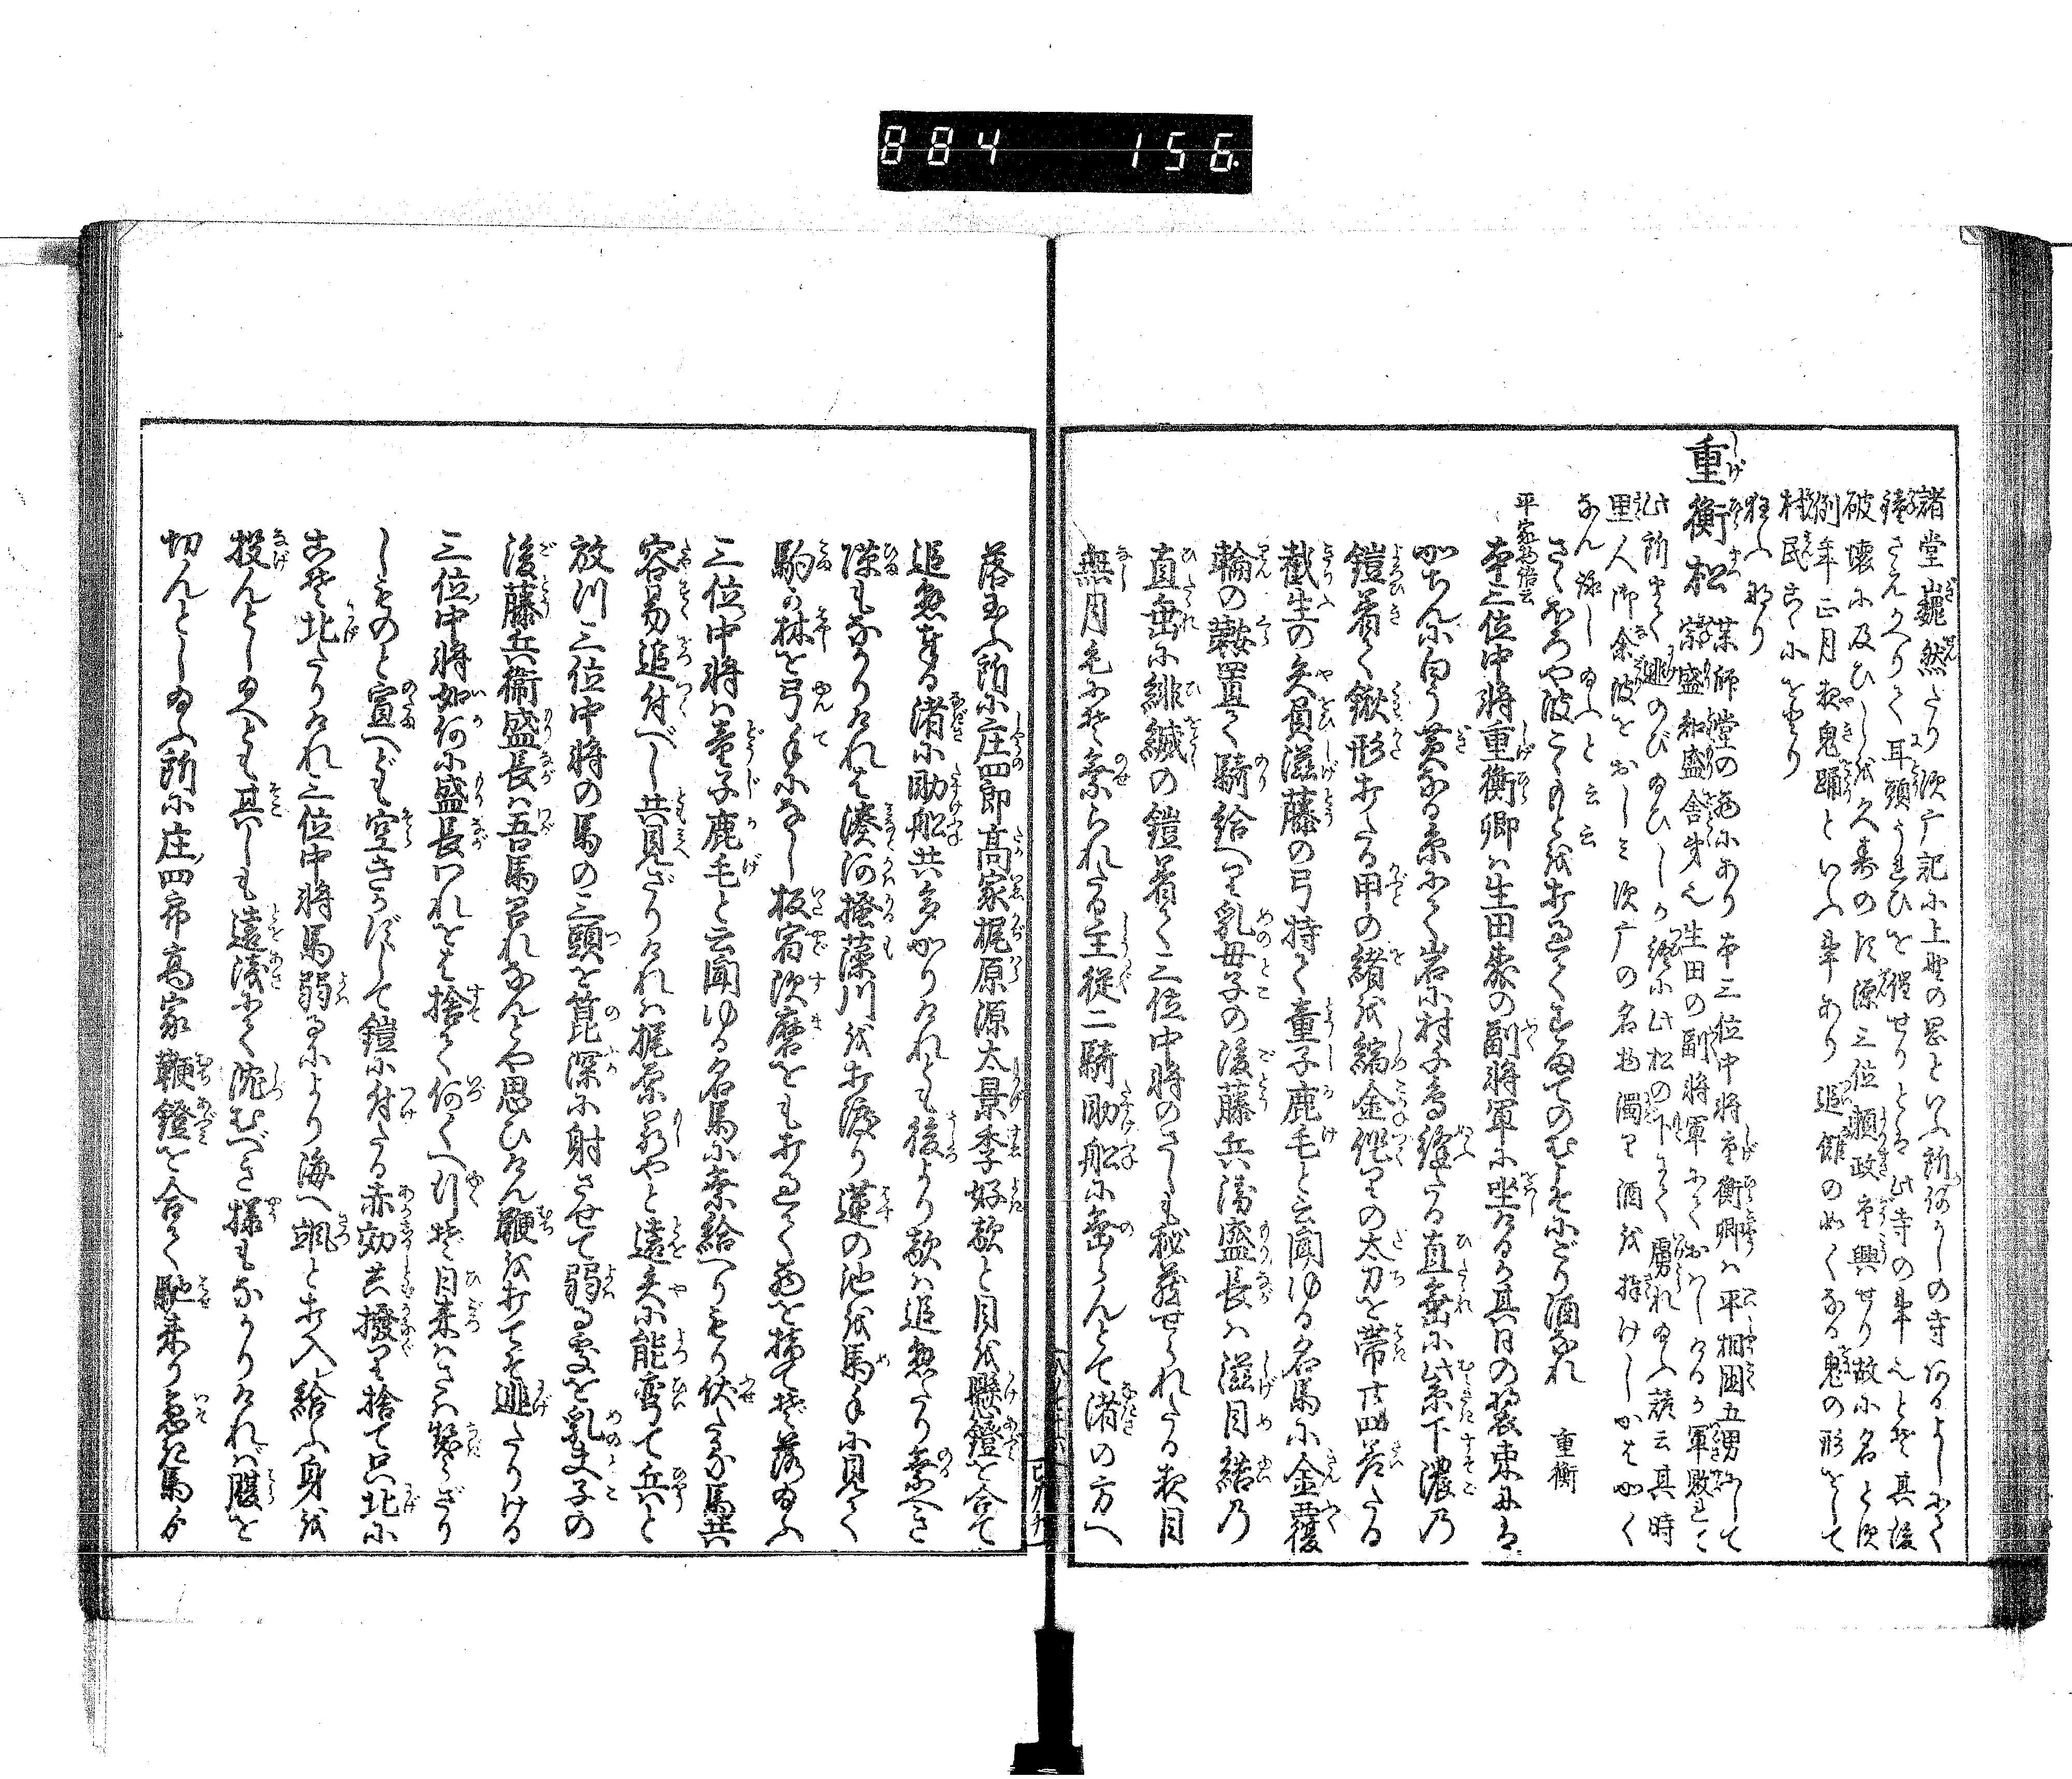 884 156
諸堂巍然たり須广記に上野の岡といふ所何かしの寺あるよしにて
鐘さえかへりて耳頭うれひを催せりとは此寺の事也とぞ其後
破壊に及ひしを久寿のころ源三位頼政重興せり故に名とす
例年正月夜鬼踊といふ事あり追儺のぬくなる鬼の形をして
村民こゝにをどり
狂ふなり
重衡松 薬師堂の西にあり本三位中将重衡卿は平相国五男にして
宗盛知盛舎弟也生田の副将軍にておはしけるが軍敗れて
此所まて逃のび給ひしが終に此松の下にて虜れ給ふ諺云其時
里人御余波をおしみ須广の名物濁り酒を捧けしかはかく
なん詠し給ふと云云
さゝほろや波こゝもとを打過てすまてのむこそにごり酒なれ 重衡
平家物語云
本三位中将重衡卿は生田森の副将軍に坐けるが其日の装束には
かちんに白う黄なる糸にて岩に村千鳥縫たる直垂に紫下濃の
鎧着て鍬形打たる甲の緒を縮金作りの太刀を帯廿四差たる
截生の矢負滋藤の弓持て童子鹿毛と云聞ゆる名馬に金覆
輪の鞍置て騎給へり乳母子の後藤兵衛盛長は滋目結の
直垂に緋縅の鎧着て三位中将のさしも秘蔵せられたる夜目
無月毛にぞ乗られたる主従二騎助船に乗らんとて渚の方へ
落玉ふ所に庄四郎高家梶原源太景季好敵と目を懸鐙を合て
追懸奉る渚に助船共多かりけれども後より敵は追懸たり乗へき
隙もなかりければ湊河掻藻川を打渡り蓮の池を馬手に見て
駒の林を弓手になし板宿須磨をも打過て西を指てぞ落給ふ
三位中将は童子鹿毛と云聞ゆる名馬に乗給へりもり伏たる馬共
容易追付べし共見ざりければ梶原若やと遠矢に能彎て兵と
放川三位中将の馬の三頭を箟深に射させて弱る処を乳夫子の
後藤兵衛盛長は吾馬召れなんとや思ひけん鞭を打てぞ逃たりける
三位中将如何に盛長われをば捨て何くへ行ぞ日来はさは契らざり
しものと宣へども空きかずして鎧に付たる赤効共撥り捨て只北に
こそ北たりけれ三位中将馬弱るにより海へ颯と打入給ふ身を
投んとし給へども其しも遠浅にて沈むべき様もなかりければ腹を
切んとし給ふ所に庄四郎高家鞭鐙を合て馳来り急ぎ馬より